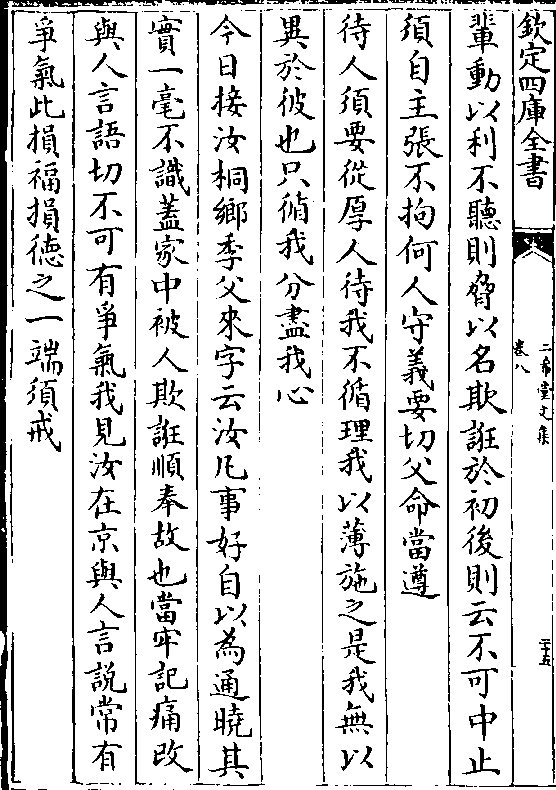 欽定四庫全書
二希堂文集
卷八
二十五
輩動以利不聽則脅以名欺誑於初後則云不可中止
須自主張不拘何人守義要切父命當遵
待人須要從厚人待我不循理我以薄施之是我無以
異於彼也只循我分盡我心
今日接汝桐鄉季父來字云汝凡事好自以為通曉其
實一毫不識蓋家中被人欺誑順奉故也當牢記痛改
與人言語切不可有爭氣我見汝在京與人言說常有
爭氣此損福損德之一端須戒